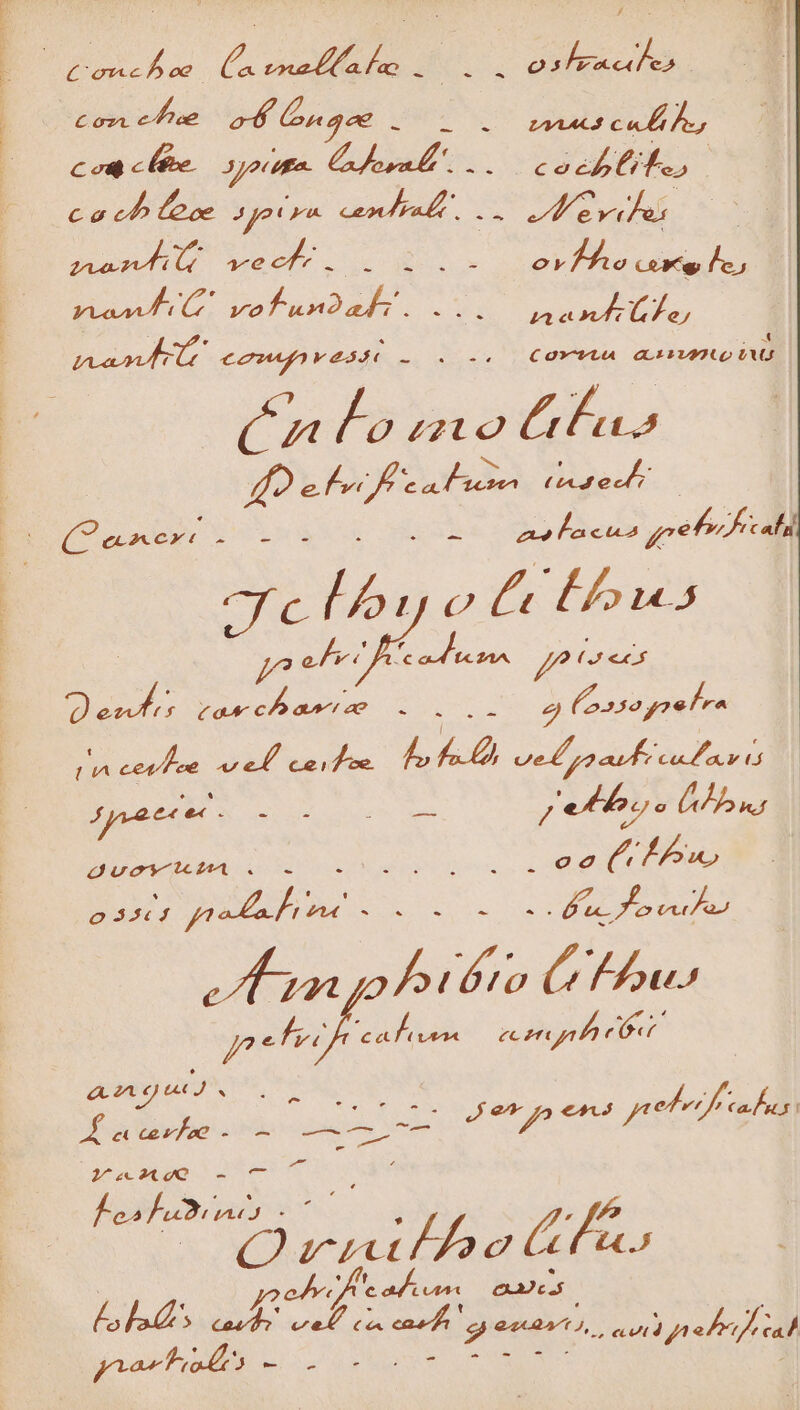 Conchæ Lamellatæ - . . ostracites
conchæ oblongæ . - . musculites
cochleæ spira laterali. . . cochlites
cochleæ spira centrali. . . Nerites
nautili recti . . . . - orthoceratites
nautili rotundati. . . . nautilites
nautili compressi - . . . Cornu ammonis
Entomolitus
Petrificatum insecti
Cancri - - - . . - astacus petrificatus
Jcthyolithus
petrificatum piscis
Dentis carchariæ . . . - glossopetra
incertæ vel certæ totalis vel particularis
Speciei . - - . — jcthyolithus
ovorum . - . . . . . - oolithus
ossis palatini - . . - - . bufonites
Amphibiolithus
petrificatum amphibii
anguis . . - . . - - - serpens petrificatus
Lacertæ - - — — - -
ranæ - - -
testudinis . -
Ornitholitus
petrificatum avis
totalis certi vel incerti generis, avis petrificat
partialis - - - - - - -